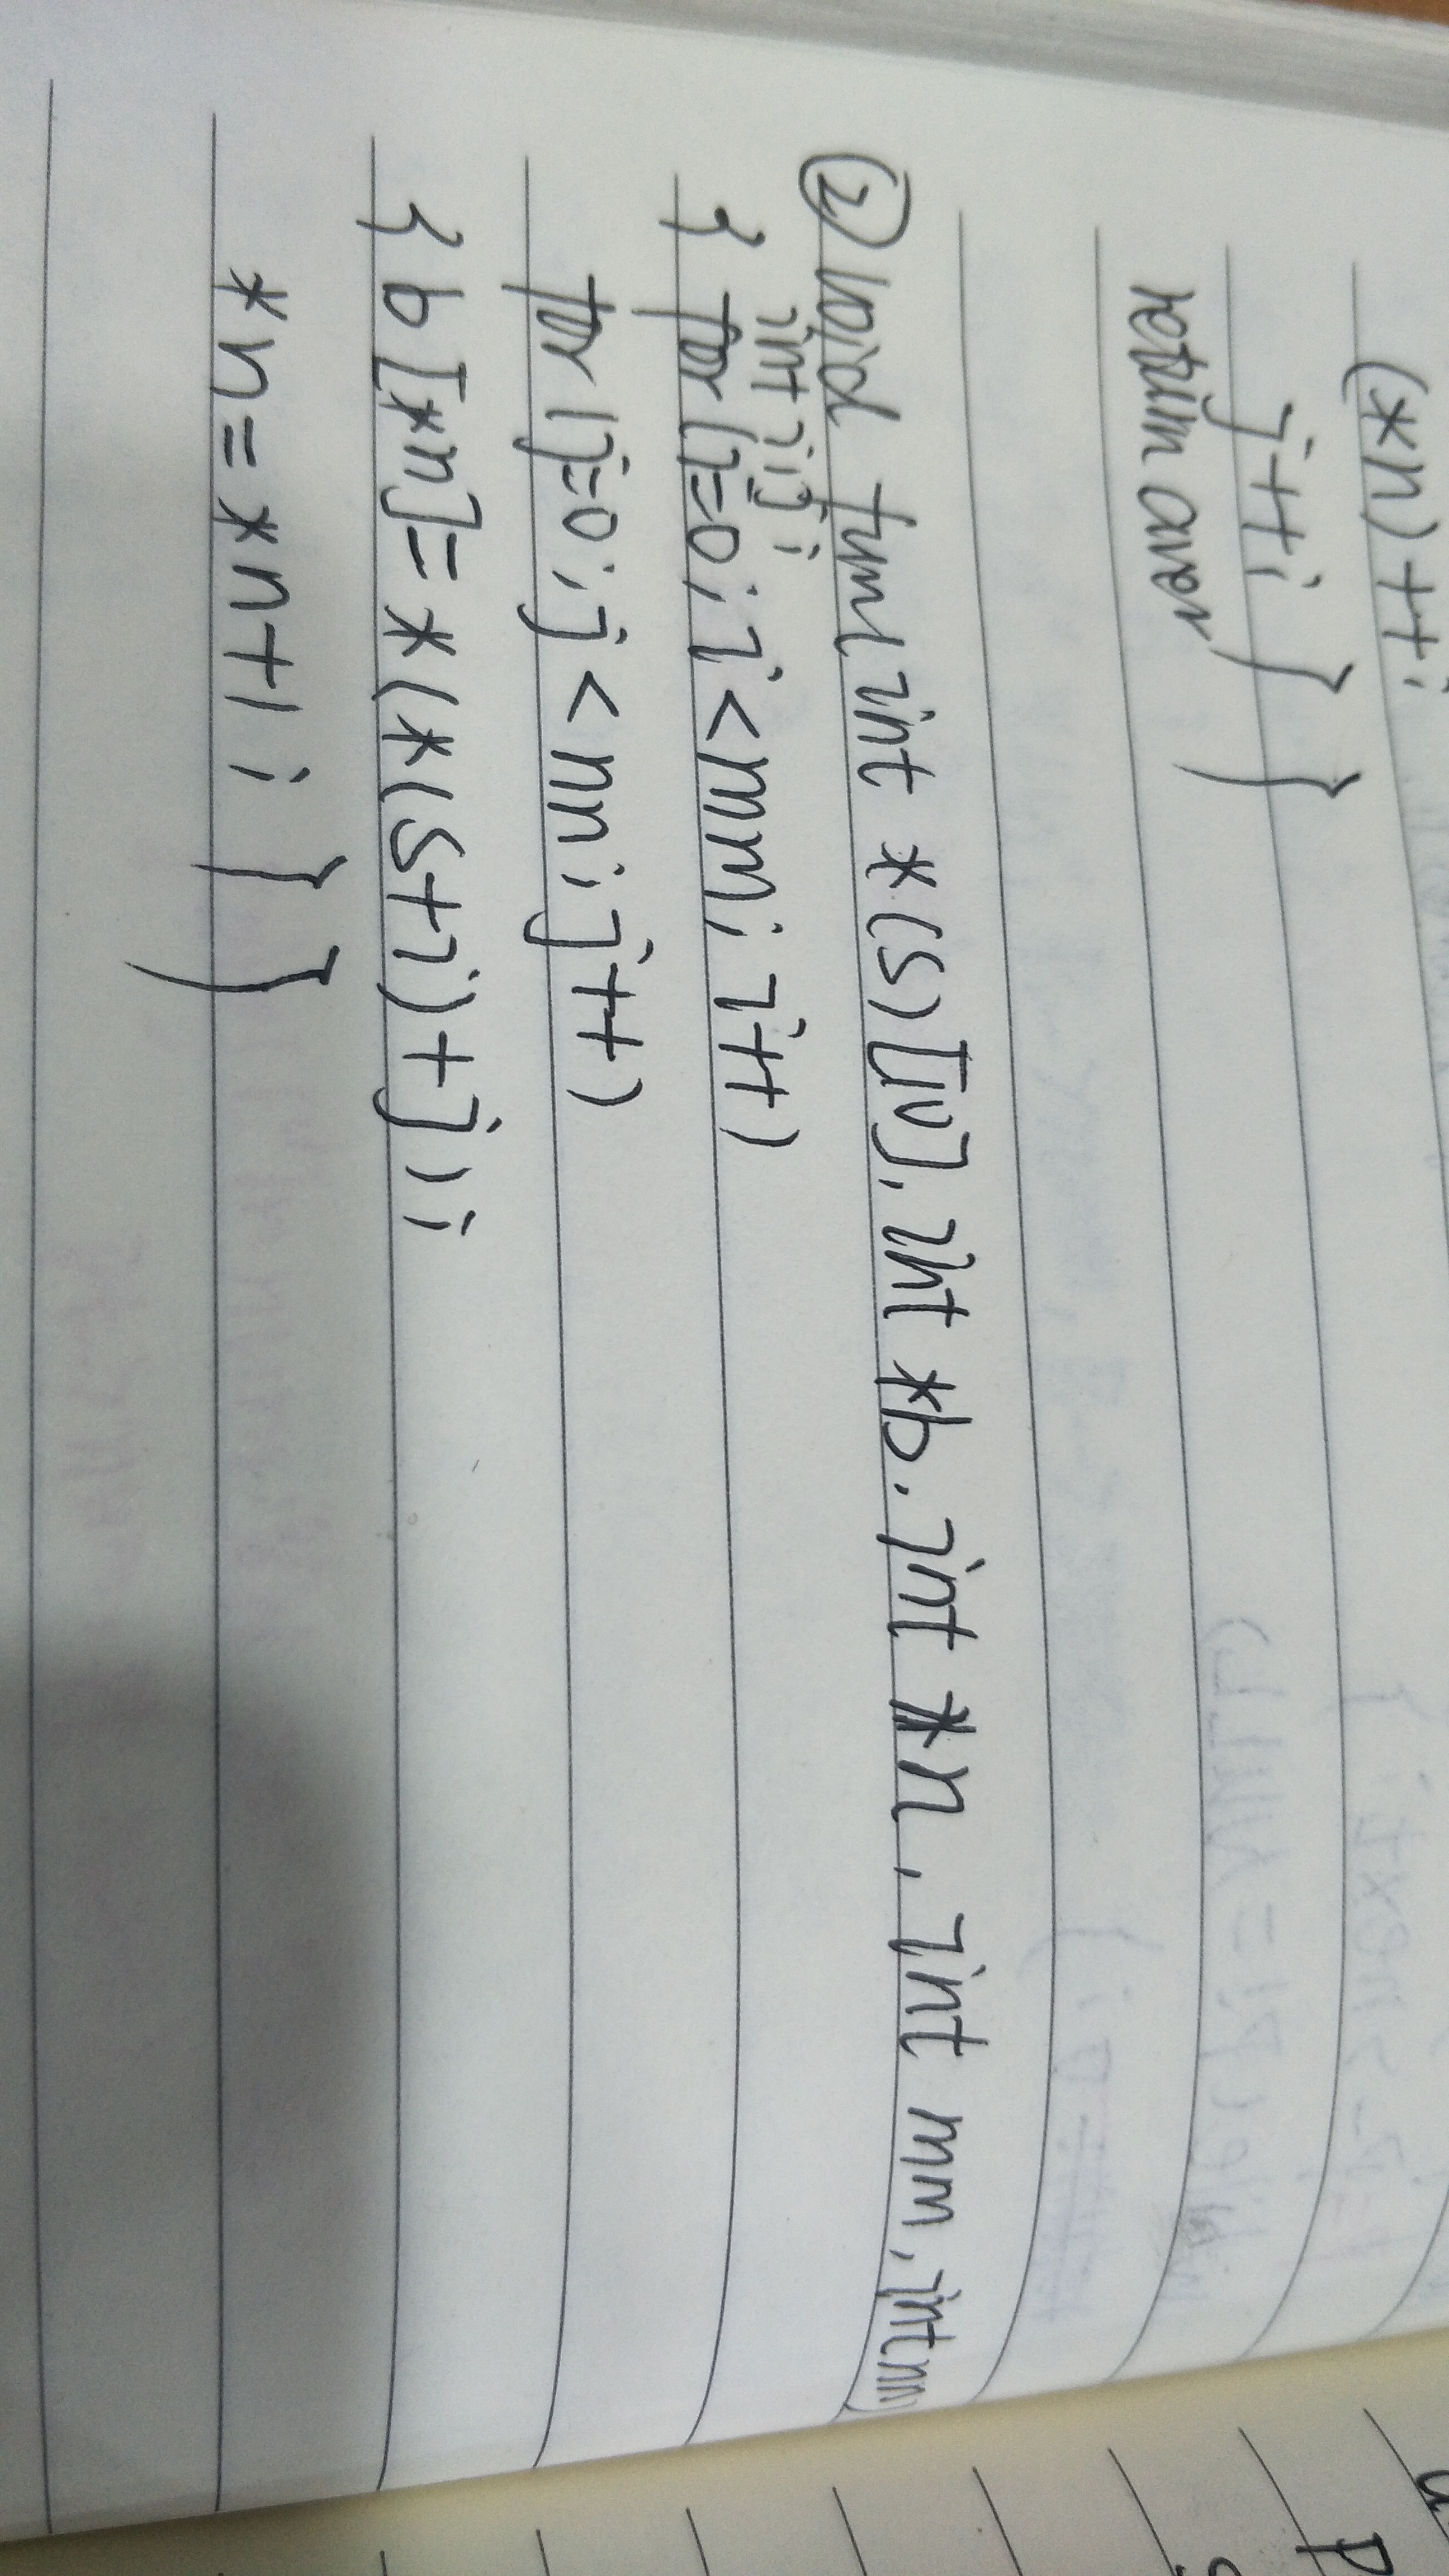 (*n)++;
j++; } }
return aver
② void fun(int *(s)[10], int *b, int *n, int mm, int nn)
int i,j;
{ for(i=0; i<mm; i++)
for(j=0; j<nn; j++)
{ b[*n]=*(*(s+i)+j);
*n=*n+1; } }